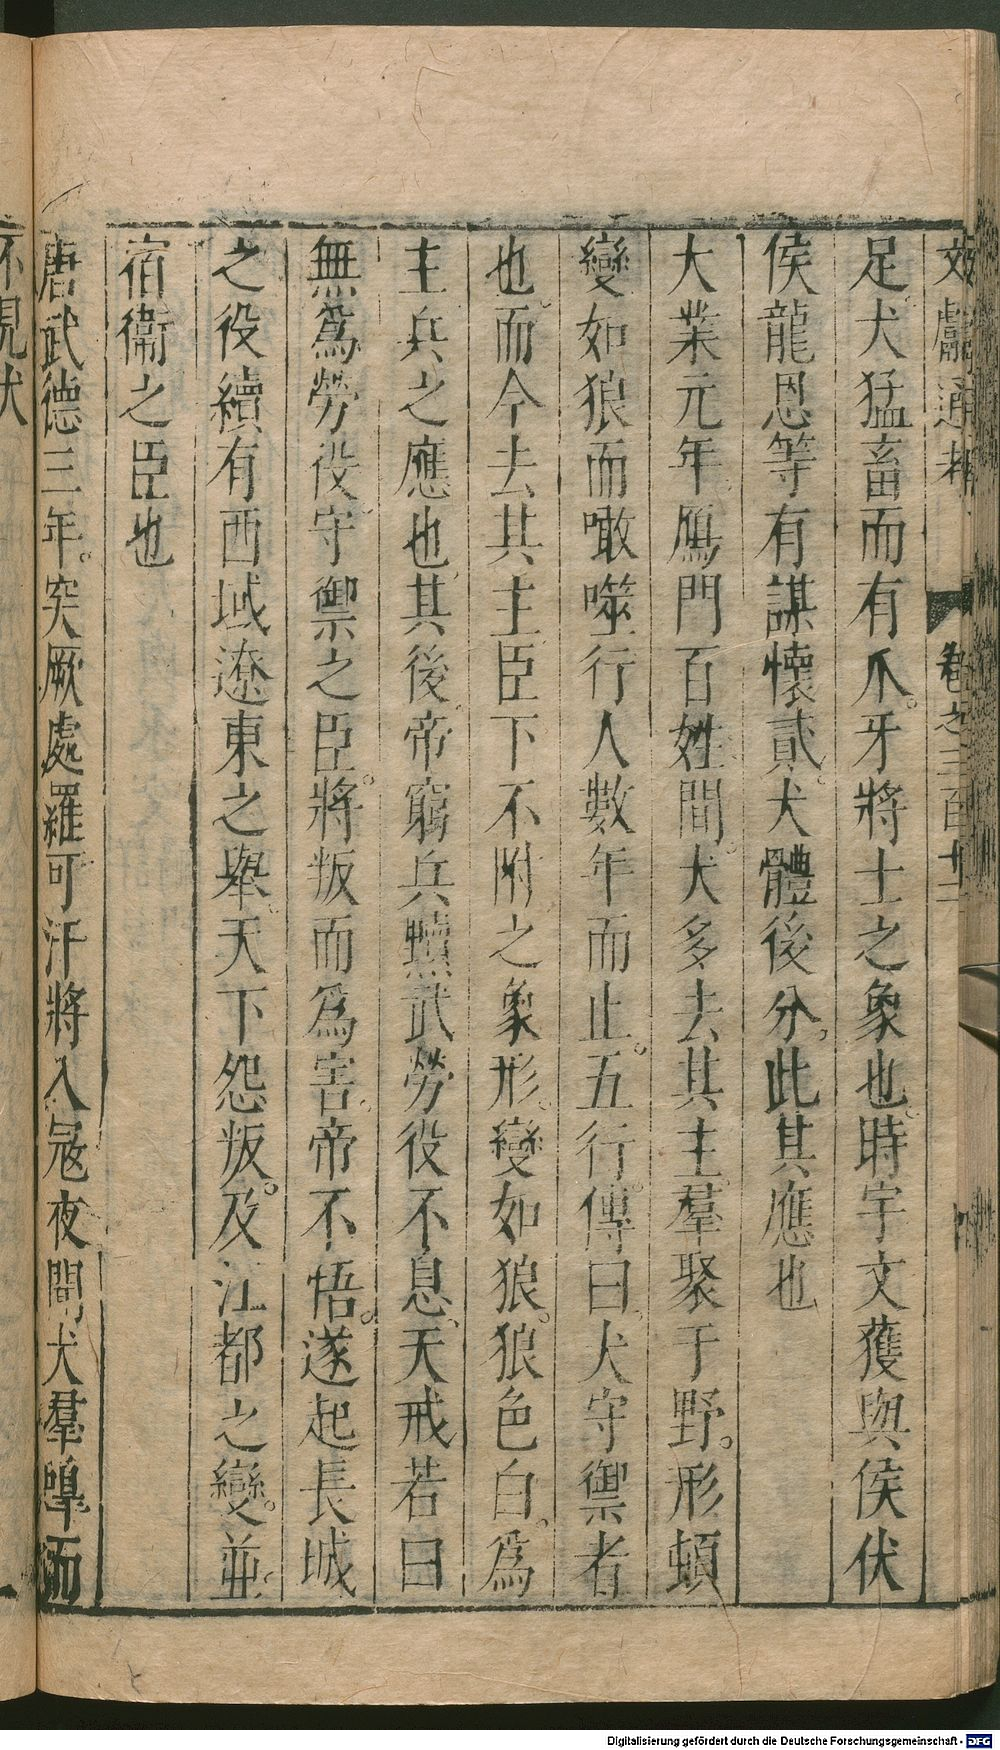 文獻通考 卷之三百十二
足犬猛畜而有爪牙將士之象也時宇文獲與侯伏
侯龍恩等有謀懷貳犬體後分此其應也
大業元年鴈門百姓間犬多去其主羣聚于野形頓
變如狼而噉噬行人數年而止五行傳曰犬守禦者
也而今去其主臣下不附之象形變如狼狼色白爲
主兵之應也其後帝窮兵黷武勞役不息天戒若曰
無爲勞役守禦之臣將叛而爲害帝不悟遂起長城
之役續有西域遼東之舉天下怨叛及江都之變並
宿衞之臣也
唐武德三年突厥處羅可汗將入寇夜聞犬羣嘷而
不見犬
Digitalisierung gefördert durch die Deutsche Forschungsgemeinschaft - DFG